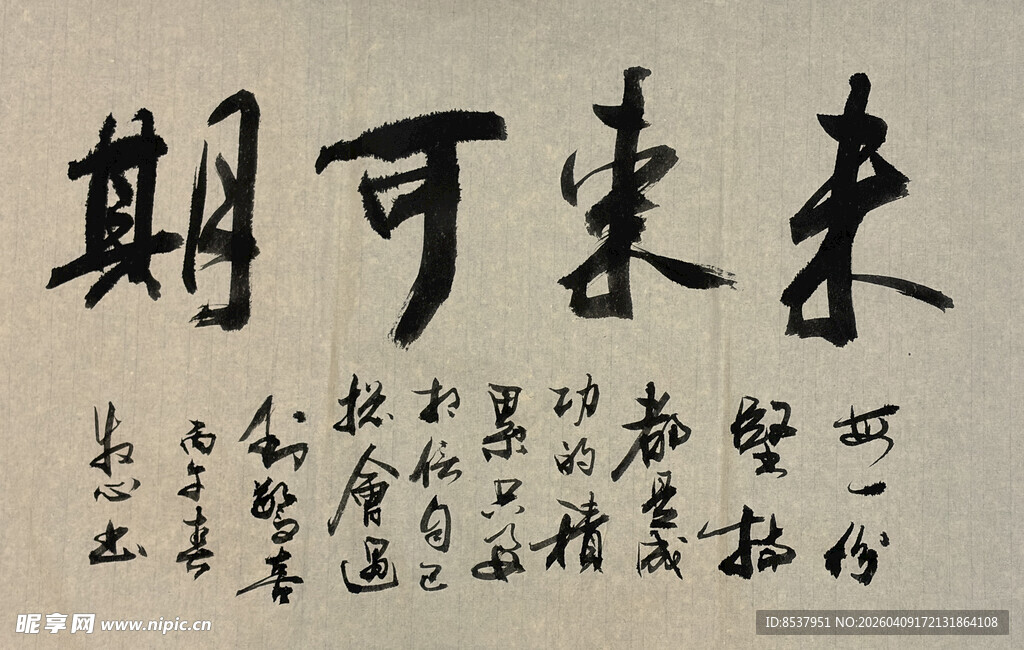 未来可期
每一份
堅持
都是成
功的積
累只要
相信自己
總會遇
到驚喜
丙午春
牧心书
昵享网 www.nipic.cn
ID:8537951 NO:20260409172131864108